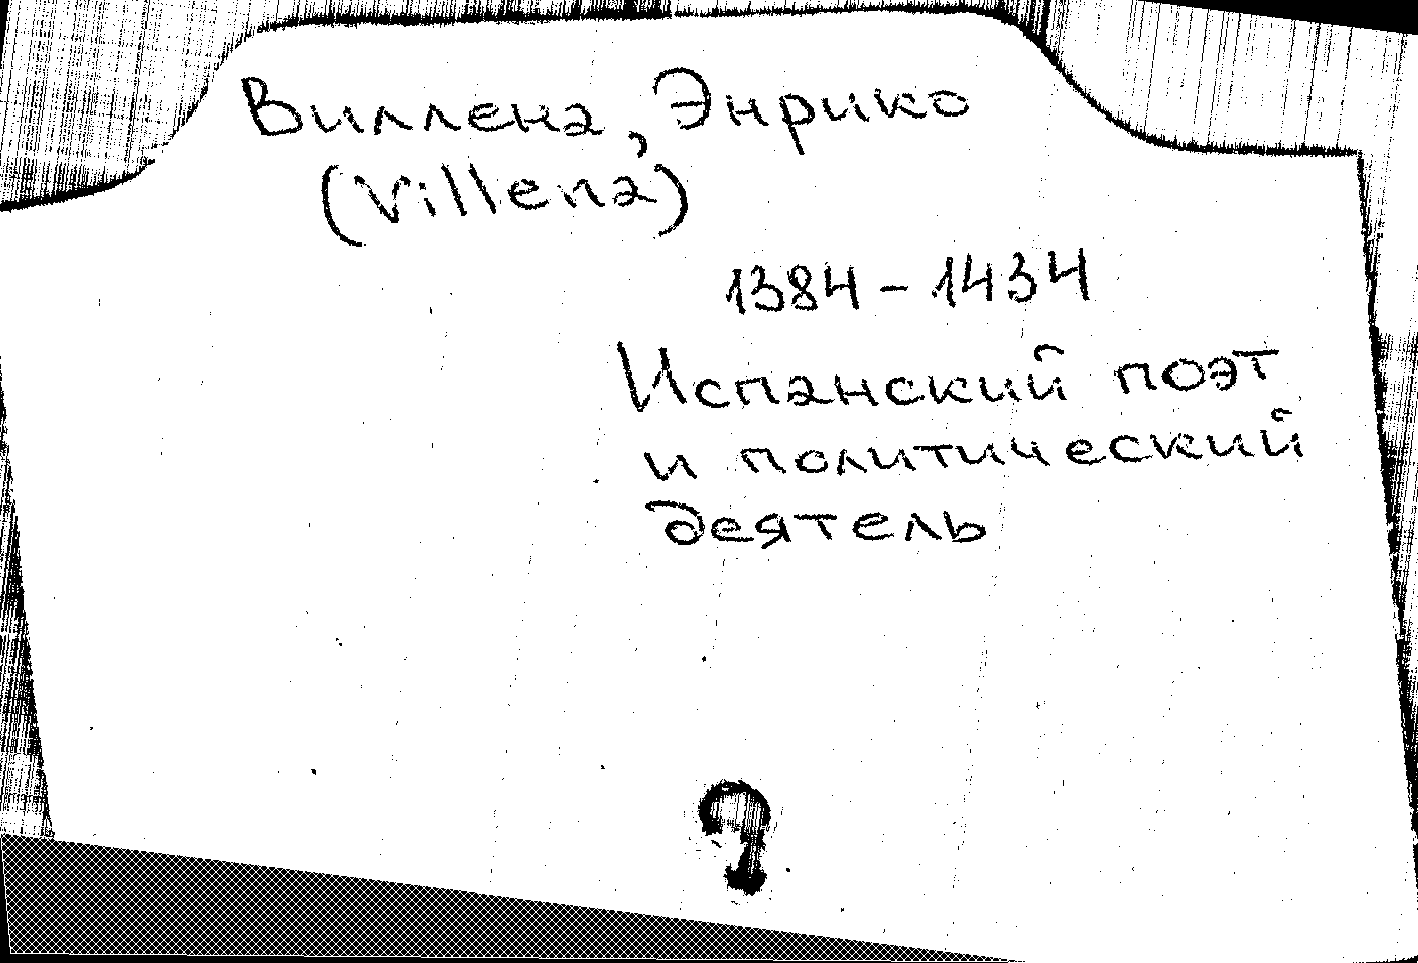 Виллена, Энрико
(Villena)
1384-1434
Испанский поэт
и политический
деятель